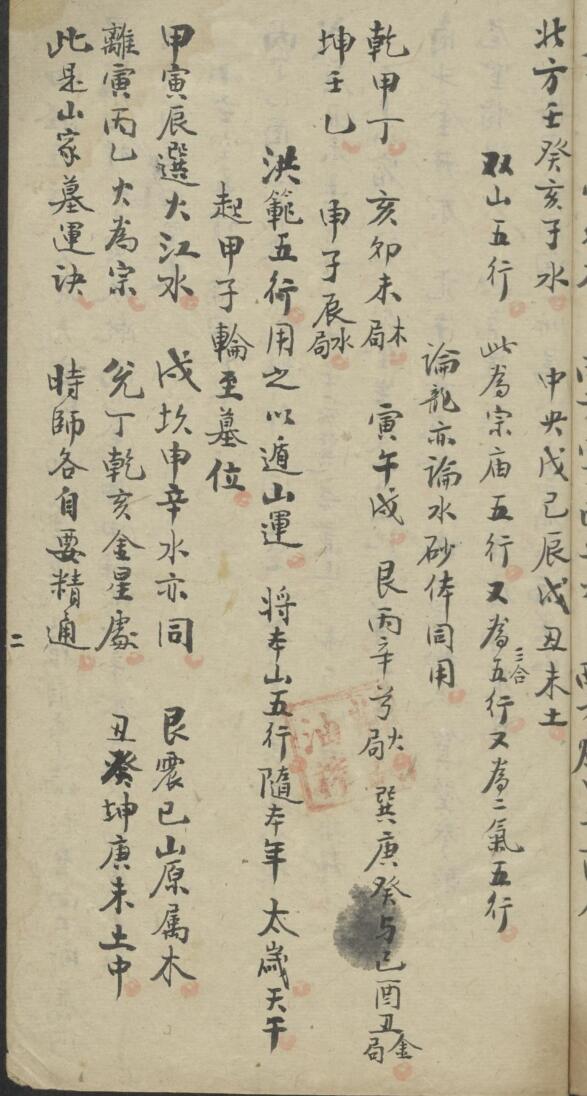 北方壬癸亥子水　中央戊己辰戌丑未土
双山五行　此為宗庙五行又為三合五行又為二氣五行
論龍亦論水砂体同用
乾甲丁　亥卯未木局　寅午戌　艮丙辛兮火局　巽庚癸与巳酉丑金局
坤壬乙　申子辰水局
洪範五行用之以遁山運　将本山五行隨本年太歲天干
起甲子輪至墓位
甲寅辰選大江水　戌坎申辛水亦同　艮震巳山原属木
離寅丙乙火為宗　兌丁乾亥金星處　丑癸坤庚未土中
此是山家墓運訣　時師各自要精通
二